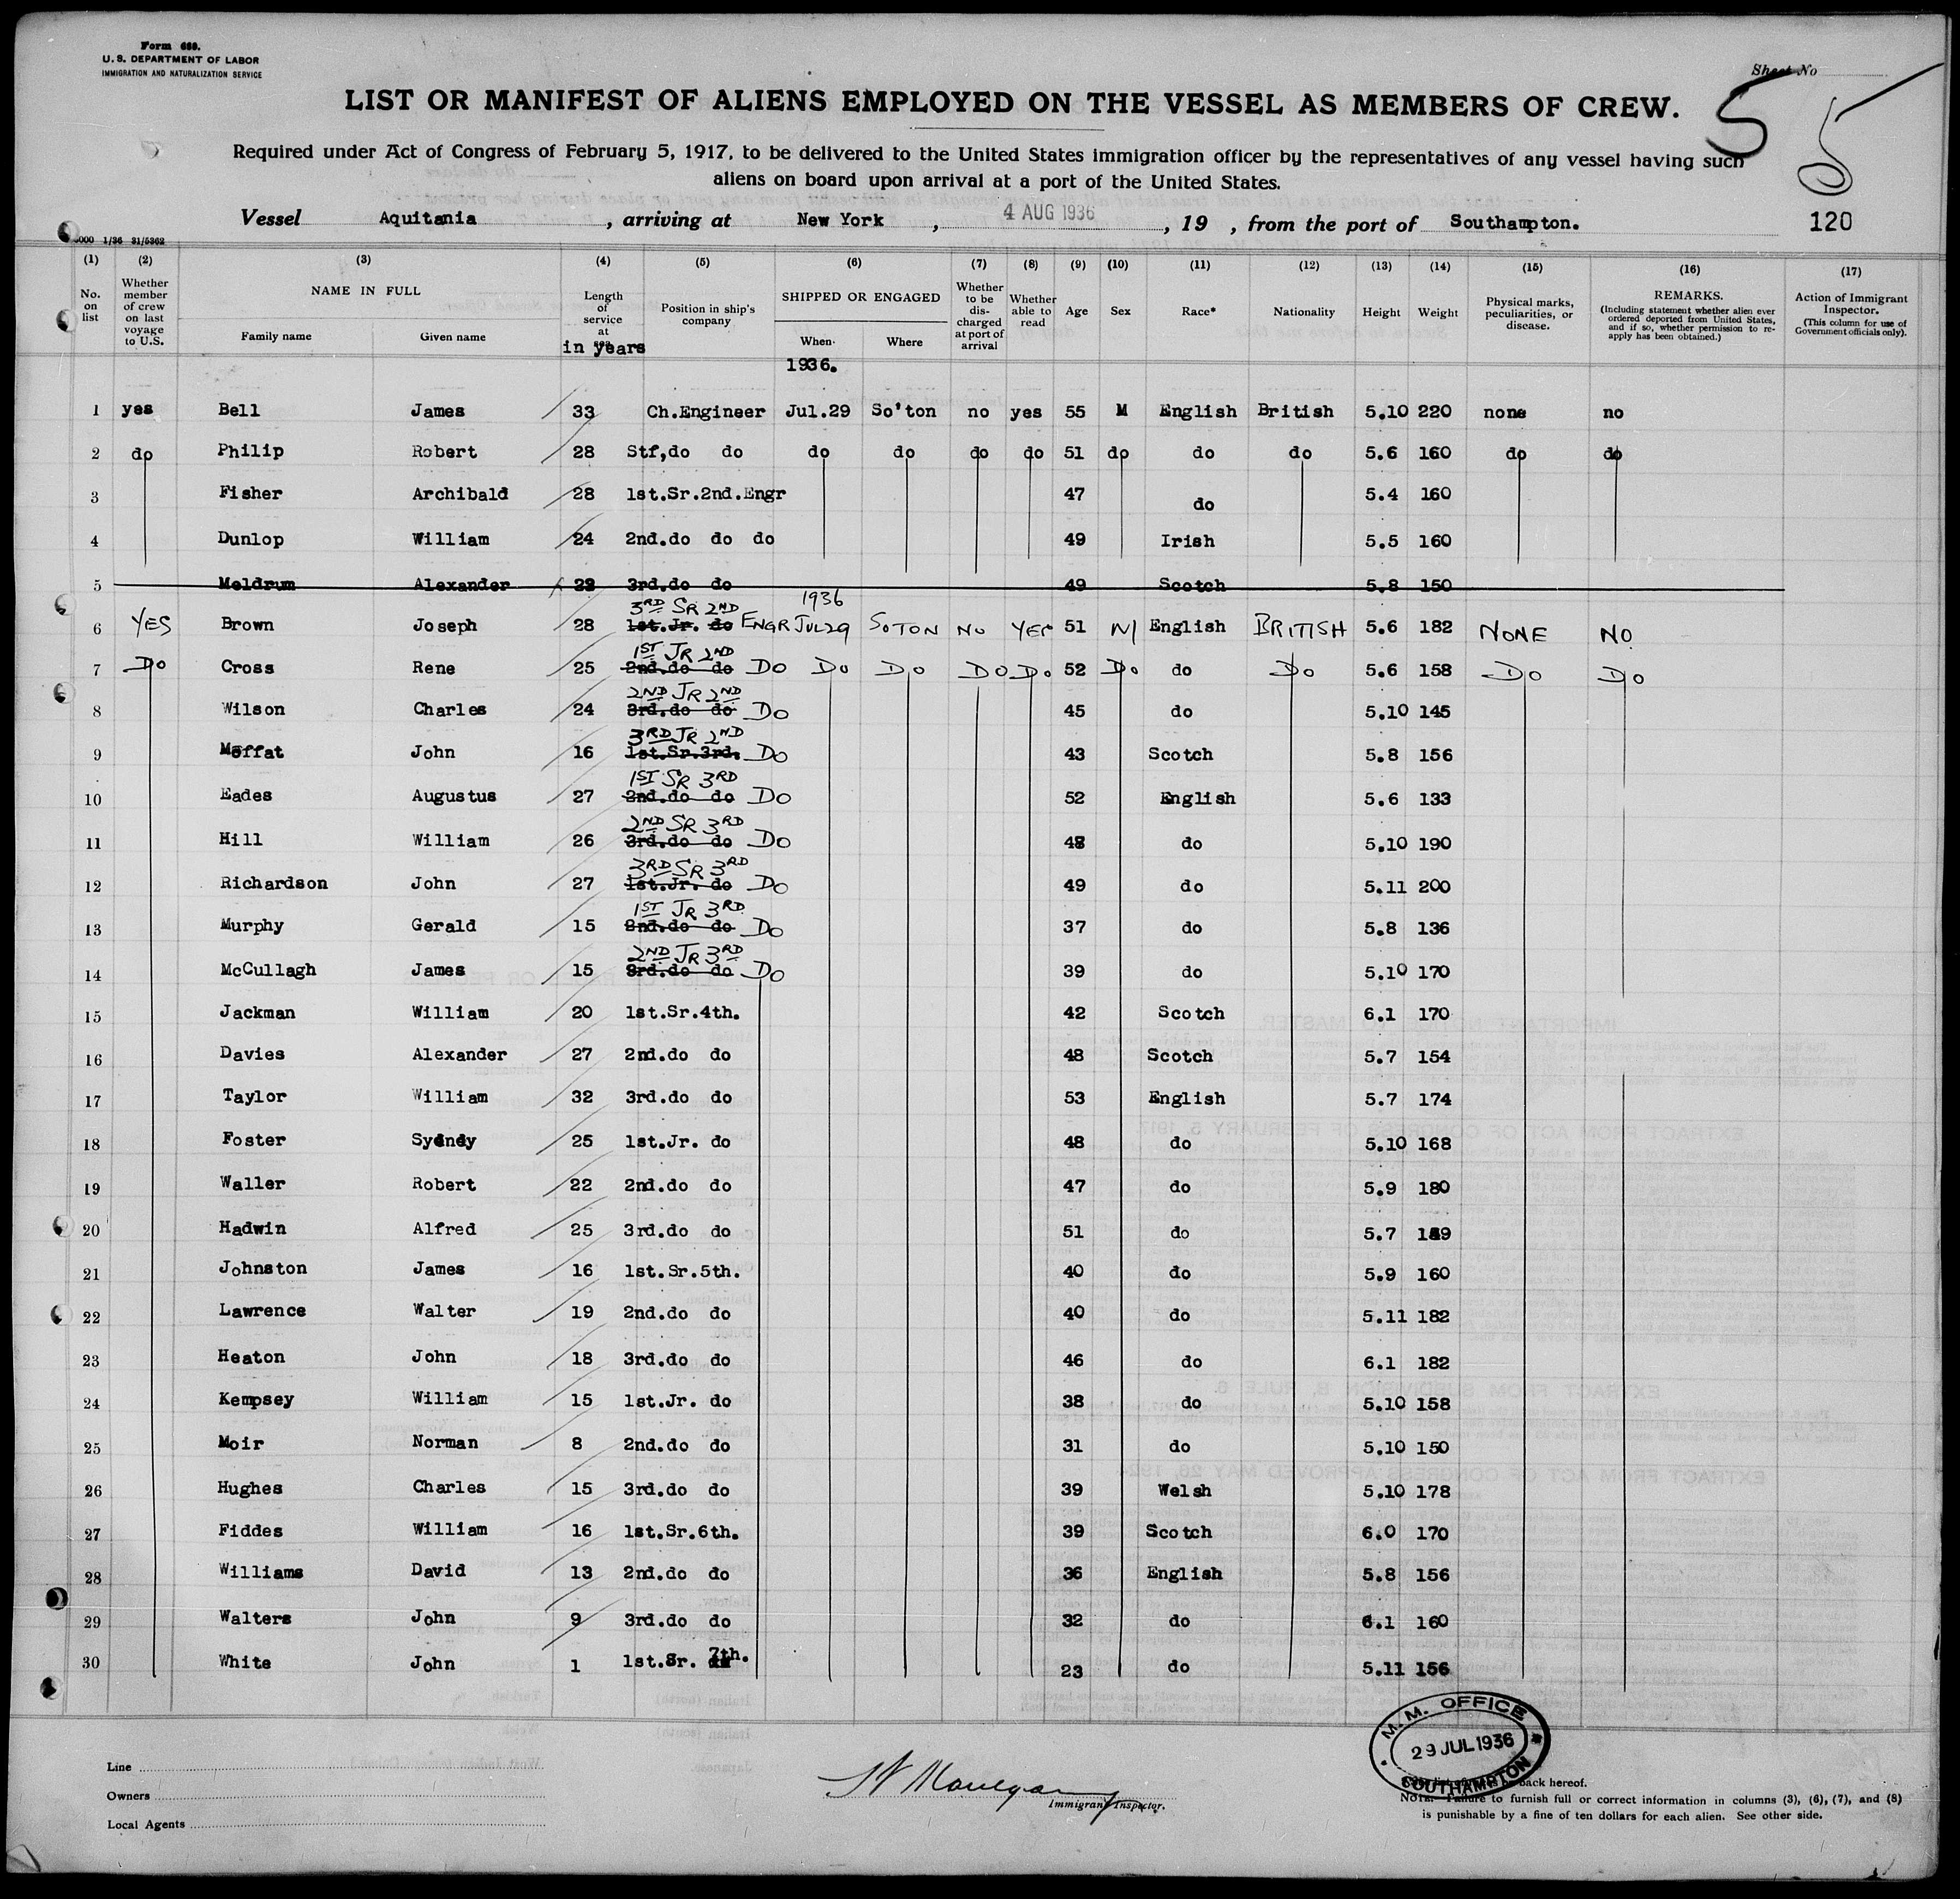 Form 689.
U. S. DEPARTMENT OF LABOR
IMMIGRATION AND NATURALIZATION SERVICE
Sheet No
5 5
LIST OR MANIFEST OF ALIENS EMPLOYED ON THE VESSEL AS MEMBERS OF CREW.
Required under Act of Congress of February 5, 1917, to be delivered to the United States immigration officer by the representatives of any vessel having such
aliens on board upon arrival at a port of the United States.
Vessel Aquitania, arriving at New York, 4 AUG 1936, 19 , from the port of Southampton. 120
1/36 31/5362
(1) (2) (3) (4) (5) (6) (7) (8) (9) (10) (11) (12) (13) (14) (15) (16) (17)
No. on list
Whether member of crew on last voyage to U.S.
NAME IN FULL
Family name Given name
Length of service at sea
in years
Position in ship's company
SHIPPED OR ENGAGED
When Where
1936.
Whether to be discharged at port of arrival
Whether able to read
Age
Sex
Race*
Nationality
Height
Weight
Physical marks, peculiarities, or disease.
REMARKS.
(Including statement whether alien ever ordered deported from United States, and if so, whether permission to re-apply has been obtained.)
Action of Immigrant Inspector.
(This column for use of Government officials only).
1 yes Bell James 33 Ch.Engineer Jul.29 So'ton no yes 55 M English British 5.10 220 none no
2 do Philip Robert 28 Stf,do do do do do do 51 do do do 5.6 160 do do
3 Fisher Archibald 28 1st.Sr.2nd.Engr 47 do 5.4 160
4 Dunlop William 24 2nd.do do do 49 Irish 5.5 160
5 Meldrum Alexander 3rd.do do 49 Scotch 5.8 150
1936
3RD SR 2ND
6 YES Brown Joseph 28 1st.Jr. do ENGR JUL29 SOTON NO YES 51 M English BRITISH 5.6 182 NONE NO
1ST JR 2ND
7 DO Cross Rene 25 2nd.do do DO DO DO DO DO 52 DO do DO 5.6 158 DO DO
2ND JR 2ND
8 Wilson Charles 24 3rd.do do DO 45 do 5.10 145
3RD JR 2ND
9 Moffat John 16 1st.Sr.3rd. DO 43 Scotch 5.8 156
1ST SR 3RD
10 Eades Augustus 27 2nd.do do DO 52 English 5.6 133
2ND SR 3RD
11 Hill William 26 3rd.do do DO 48 do 5.10 190
3RD SR 3RD
12 Richardson John 27 1st.Jr. do DO 49 do 5.11 200
1ST JR 3RD
13 Murphy Gerald 15 2nd.do do DO 37 do 5.8 136
2ND JR 3RD
14 McCullagh James 15 3rd.do do DO 39 do 5.10 170
15 Jackman William 20 1st.Sr.4th. 42 Scotch 6.1 170
16 Davies Alexander 27 2nd.do do 48 Scotch 5.7 154
17 Taylor William 32 3rd.do do 53 English 5.7 174
18 Foster Sydney 25 1st.Jr. do 48 do 5.10 168
19 Waller Robert 22 2nd.do do 47 do 5.9 180
20 Hadwin Alfred 25 3rd.do do 51 do 5.7
21 Johnston James 16 1st.Sr.5th. 40 do 5.9 160
22 Lawrence Walter 19 2nd.do do 40 do 5.11 182
23 Heaton John 18 3rd.do do 46 do 6.1 182
24 Kempsey William 15 1st.Jr. do 38 do 5.10 158
25 Moir Norman 8 2nd.do do 31 do 5.10 150
26 Hughes Charles 15 3rd.do do 39 Welsh 5.10 178
27 Fiddes William 16 1st.Sr.6th. 39 Scotch 6.0 170
28 Williams David 13 2nd.do do 36 English 5.8 156
29 Walters John 9 3rd.do do 32 do 6.1 160
30 White John 1 1st.Sr. 7th. 23 do 5.11 156
M. M. OFFICE
29 JUL 1936
SOUTHAMPTON
Line
Owners
Local Agents
Immigrant Inspector.
back hereof.
NOTE. Failure to furnish full or correct information in columns (3), (6), (7), and (8)
is punishable by a fine of ten dollars for each alien. See other side.